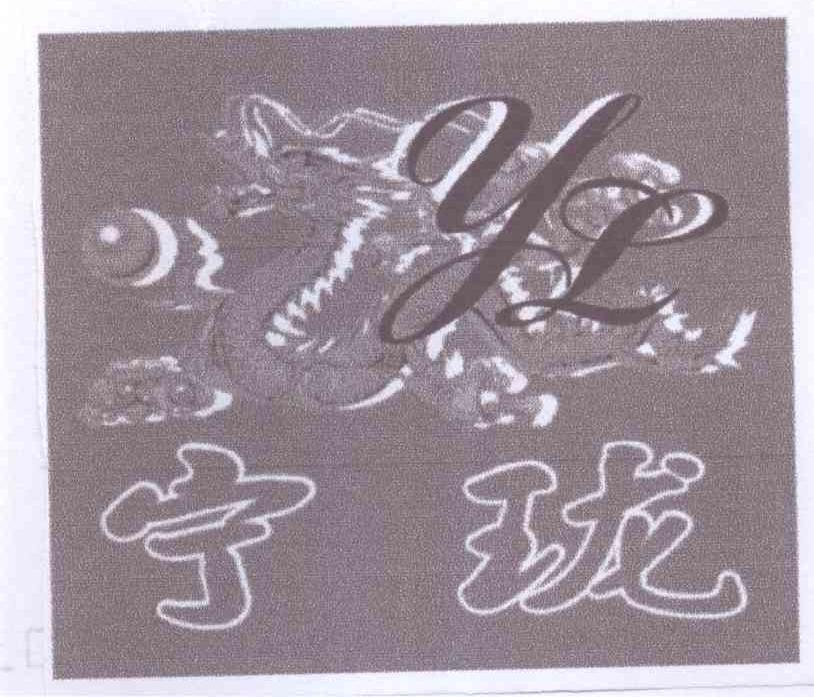 YL
宁珑